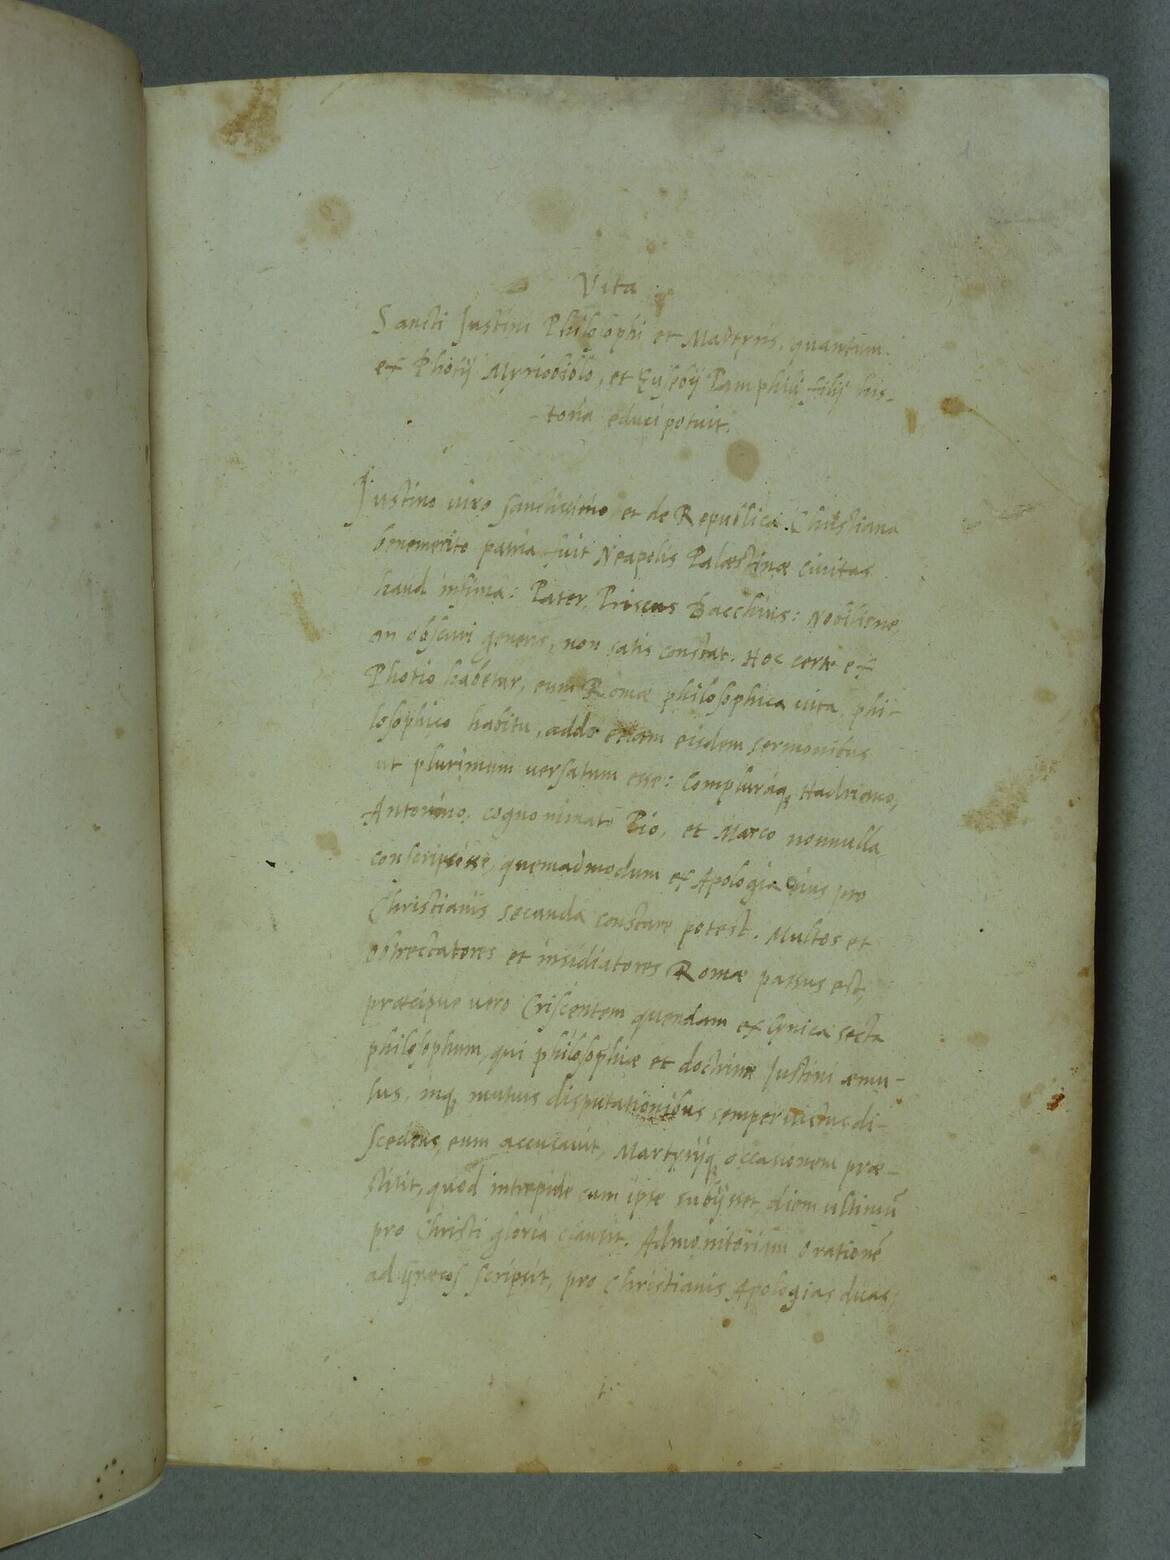 Vita
Sancti Justini Philosophi et Martyris, quantum
ex Photij Myriobiblo, et Eusebij Pamphili filij his-
toria educi potuit.
Justino viro sanctissimo, et de Republica Christiana
benemerito patria fuit Neapolis Palæstinæ civitas
haud infima: Pater Priscus Bacchius: Nobilisne
an obscuri generis, non satis constat. Hoc certe ex
Photio habetur, eum Romæ philosophica vita, phi-
losophico habitu, addo etiam eisdem sermonibus
ut plurimum versatum esse: Compluraq; Hadriano,
Antonino, cognominato Pio, et Marco nonnulla
conscripsisse, quemadmodum ex Apologia eius pro
Christianis secunda constare potest. Multos et
obtrectatores et insidiatores Romæ passus est,
præcipue vero Criscentem quendam ex Cynica secta
philosophum, qui philosophiæ et doctrinæ Justini æmu-
lus, inq; mutuis disputationibus semper victus di-
scedens, eum accusavit, Martyrijq; occasionem præ-
stitit, quod intrepide cum ipse subijsset, diem ultimū
pro Christi gloria clausit. Admonitoriam orationē
ad Græcos scripsit, pro Christianis Apologias duas,
1